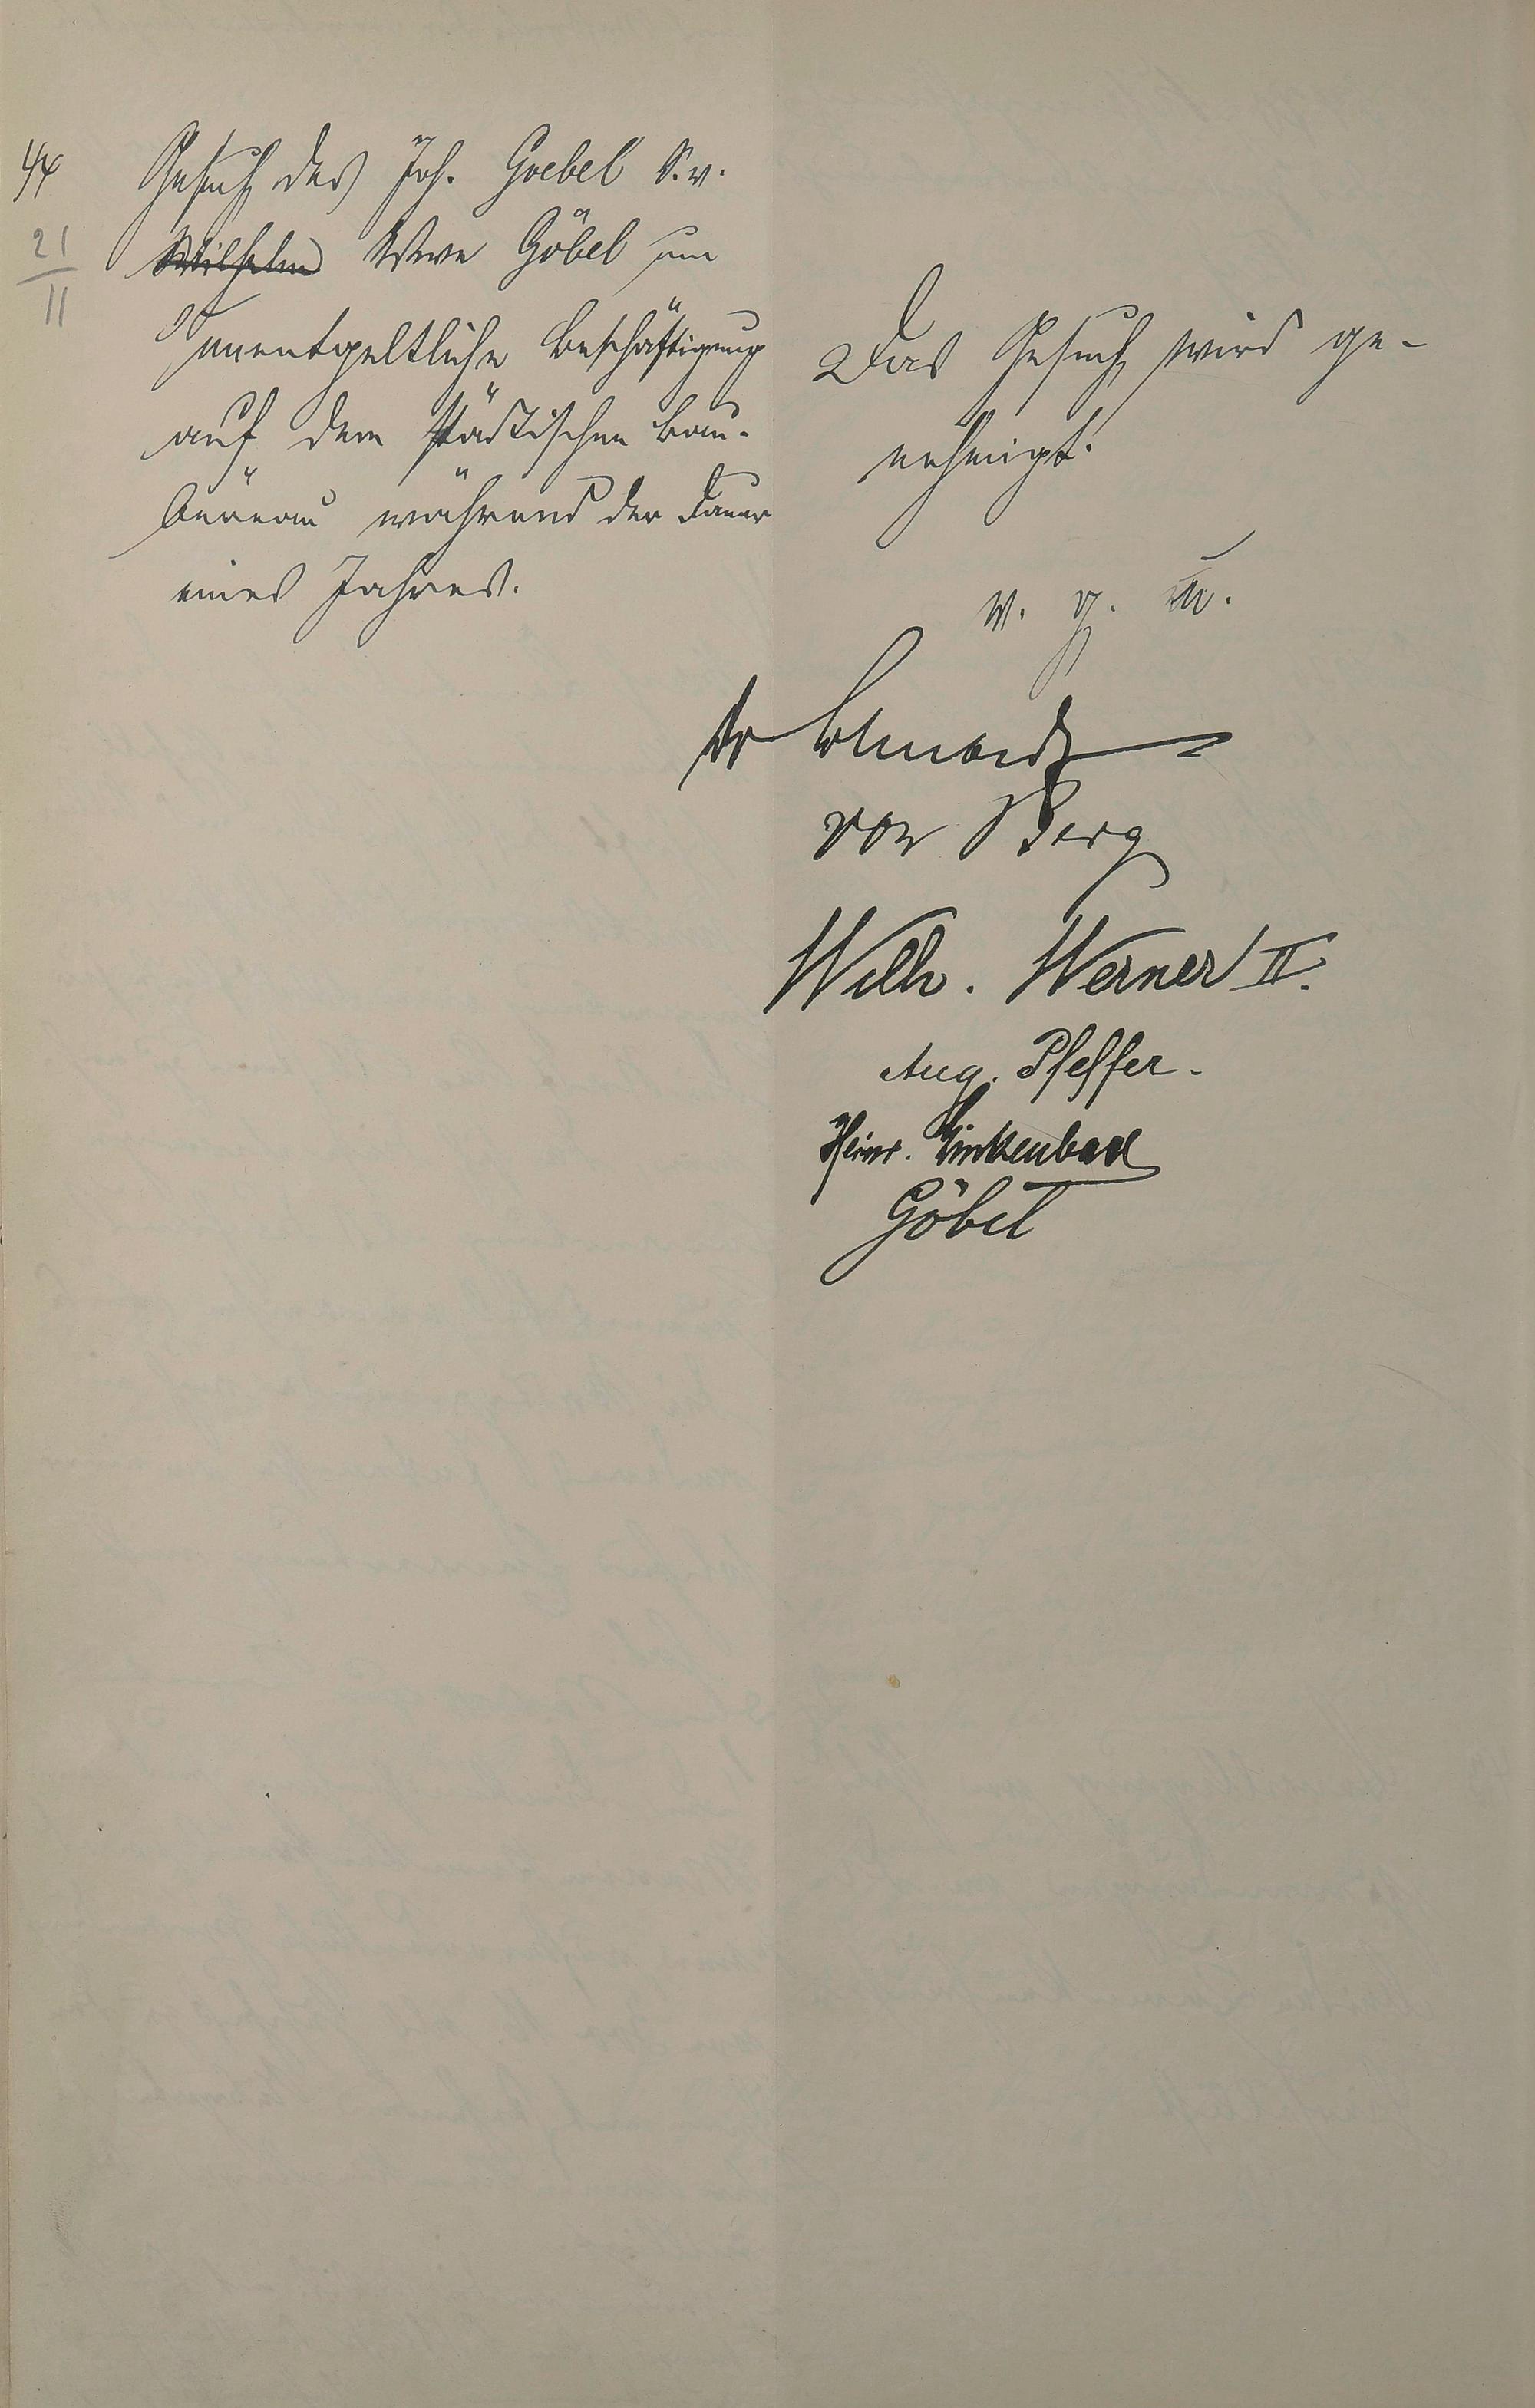 44
21
11
Gesuch des Joh. Goebel S. v.
Wilhelm Wwe Göbel um
unentgeltliche Beschäftigung
auf dem städtischen Bau-
büreau während der Dauer
eines Jahres.
Das Gesuch wird ge-
nehmigt.
v. g. u.
Dr
von Berg
Wilh. Werner II.
Aug. Pfeffer.
Heinr. Linkenbach
Göbel